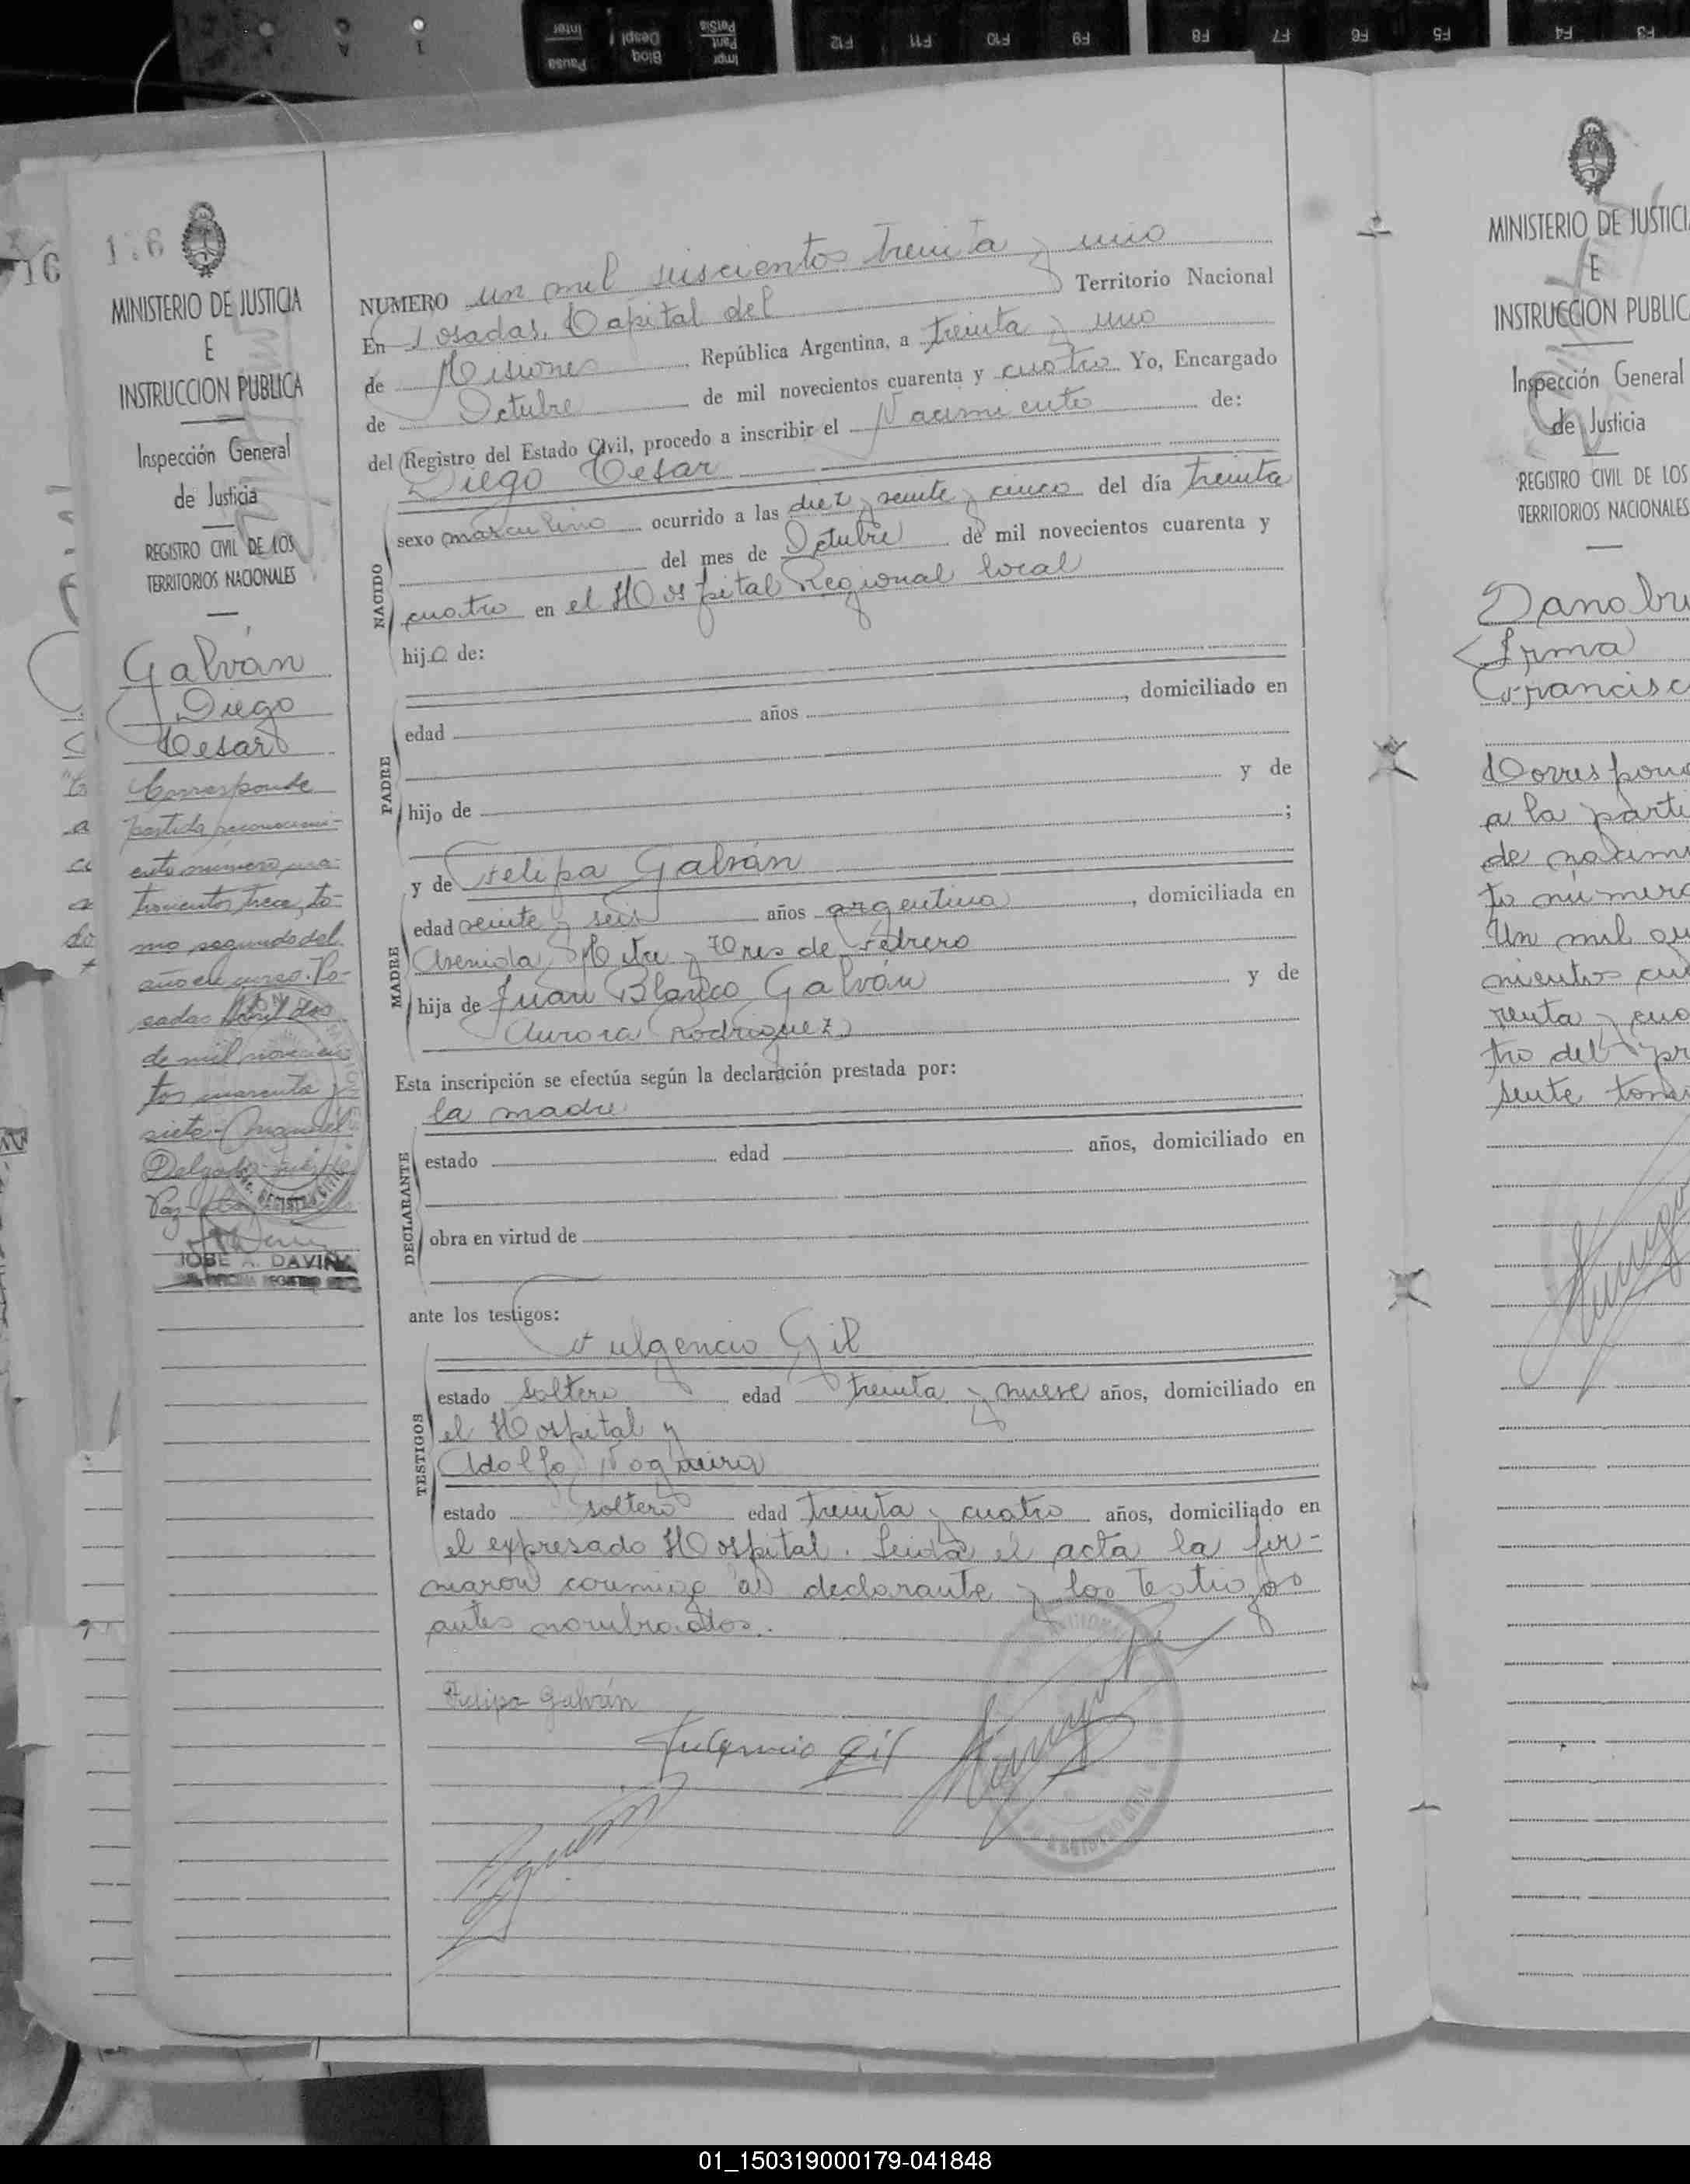 Inter
Pausa
Despl
Bloq
PetSis
Pant
Impr
F12
F11
F10
F9
F8
F7
F6
F5
F4
F3
16
MINISTERIO DE JUSTICIA
E
INSTRUCCION PUBLICA
Inspección General
de Justicia
REGISTRO CIVIL DE LOS
TERRITORIOS NACIONALES
Galván
Diego
Cesar
Corresponde
partida reconocimi-
ento número
trescientos trece, to-
mo segundo del
año en curso. Po-
sadas Abril dos
de mil novecien
tos cuarenta y
siete - Manuel
Delgado
Paz
JOSE A. DAVIÑA
NUMERO un mil seiscientos treinta y uno
En Posadas, Capital del Territorio Nacional
de Misiones República Argentina, a treinta y uno
de Octubre de mil novecientos cuarenta y cuatro Yo, Encargado
del Registro del Estado Civil, procedo a inscribir el Nacimiento de:
Diego Cesar
NACIDO
sexo masculino ocurrido a las diez y veinte y cinco del día treinta
del mes de Octubre de mil novecientos cuarenta y
cuatro en el Hospital Regional local
hijo de:
PADRE
edad años , domiciliado en
hijo de y de
;
y de Felipa Galván
MADRE
edad veinte y seis años argentina , domiciliada en
Avenida Mitre y Tres de Febrero
hija de Juan Blanco Galván y de
Aurora Rodriguez
Esta inscripción se efectúa según la declaración prestada por:
la madre
DECLARANTE
estado edad años, domiciliado en
obra en virtud de
ante los testigos:
Fulgencio Gil
TESTIGOS
estado soltero edad treinta y nueve años, domiciliado en
el Hospital y
Adolfo Nogueira
estado soltero edad treinta y cuatro años, domiciliado en
el expresado Hospital. Leida el acta la fir-
maron conmigo la declarante y los testigos
antes nombrados.
Felipa Galván
Fulgencio Gil
MINISTERIO DE JUSTICI
E
INSTRUCCION PUBLIC
Inspección General
de Justicia
REGISTRO CIVIL DE LOS
TERRITORIOS NACIONALES
Irma
Francisc
Correspon
a la parti
de nacimi
to número
Un mil qu
nientos cua
renta y cua
tro del pre
sente tomo
01_150319000179-041848